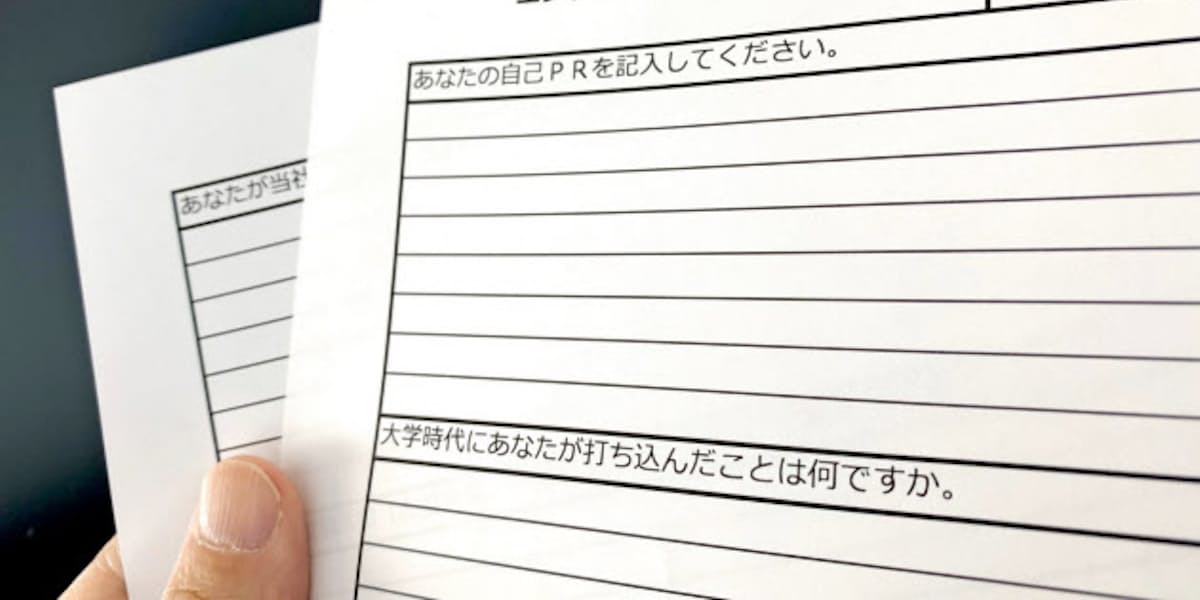 あなたの自己ＰＲを記入してください。
あなたが当社
大学時代にあなたが打ち込んだことは何ですか。